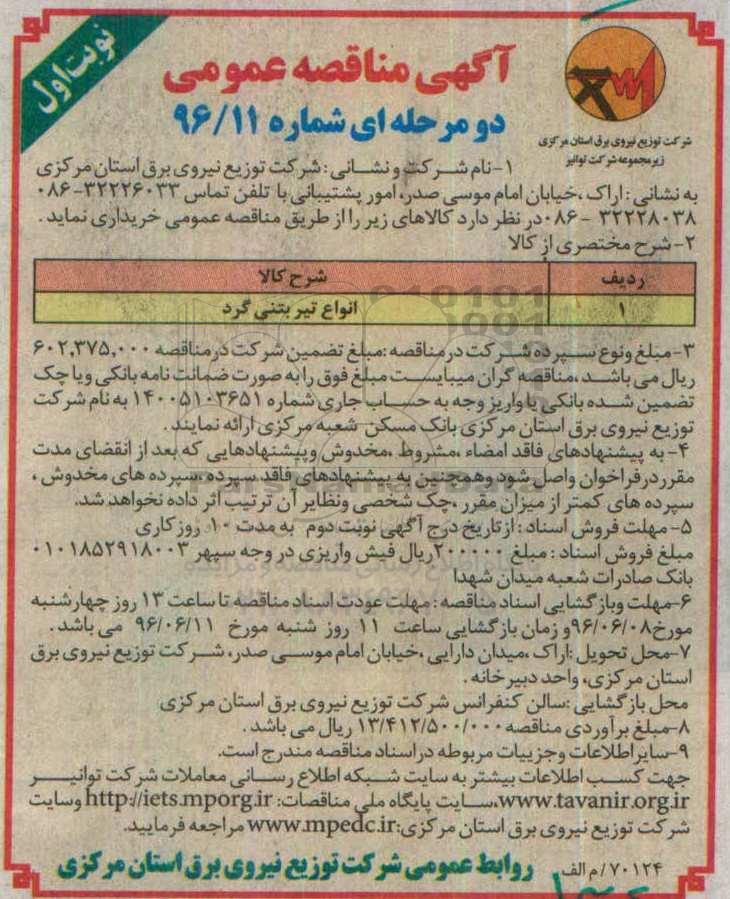 نوبت اول
آگهی مناقصه عمومی
دو مرحله ای شماره ۹۶/۱۱
شرکت توزیع نیروی برق استان مرکزی
زیرمجموعه شرکت توانیر
۱-نام شرکت و نشانی : شرکت توزیع نیروی برق استان مرکزی
به نشانی : اراک ،خیابان امام موسی صدر، امور پشتیبانی با تلفن تماس ۳۲۲۲۶۰۳۳-۰۸۶
۳۲۲۲۸۰۳۸ -۰۸۶در نظر دارد کالاهای زیر را از طریق مناقصه عمومی خریداری نماید .
۲-شرح مختصری از کالا
ردیف شرح کالا
۱ انواع تیر بتنی گرد
۳-مبلغ ونوع سپرده شرکت درمناقصه :مبلغ تضمین شرکت درمناقصه ۶۰۲,۳۷۵,۰۰۰
ریال می باشد ،مناقصه گران میبایست مبلغ فوق رابه صورت ضمانت نامه بانکی ویا چک
تضمین شده بانکی یا واریز وجه به حساب جاری شماره ۱۴۰۰۵۱۰۳۶۵۱ به نام شرکت
توزیع نیروی برق استان مرکزی بانک مسکن- شعبه مرکزی ارائه نمایند .
۴- به پیشنهادهای فاقد امضاء ،مشروط ،مخدوش وپیشنهادهایی که بعد از انقضای مدت
مقرردرفراخوان واصل شود وهمچنین به پیشنهادهای فاقد سپرده ،سپرده های مخدوش ،
سپرده های کمتر از میزان مقرر ،چک شخصی ونظایر آن ترتیب اثر داده نخواهد شد.
۵- مهلت فروش اسناد : ازتاریخ درج آگهی نوبت دوم به مدت ۱۰ روز کاری
مبلغ فروش اسناد : مبلغ ۲۰۰۰۰۰ریال فیش واریزی در وجه سپهر ۰۱۰۱۸۵۲۹۱۸۰۰۳
بانک صادرات شعبه میدان شهدا
۶-مهلت وبازگشایی اسناد مناقصه : مهلت عودت اسناد مناقصه تا ساعت ۱۳ روز چهارشنبه
مورخ۹۶/۰۶/۰۸و زمان بازگشایی ساعت ۱۱ روز شنبه مورخ ۹۶/۰۶/۱۱ می باشد .
۷-محل تحویل :اراک ،میدان دارایی ،خیابان امام موسی صدر، شرکت توزیع نیروی برق
استان مرکزی، واحد دبیرخانه .
محل بازگشایی :سالن کنفرانس شرکت توزیع نیروی برق استان مرکزی
۸-مبلغ برآوردی مناقصه ۱۳/۴۱۲/۵۰۰/۰۰۰ ریال می باشد .
۹-سایراطلاعات وجزییات مربوطه دراسناد مناقصه مندرج است.
جهت کسب اطلاعات بیشتر به سایت شبکه اطلاع رسانی معاملات شرکت توانیر
www.tavanir.org.ir،سایت پایگاه ملی مناقصات: http://iets.mporg.ir وسایت
شرکت توزیع نیروی برق استان مرکزی:www.mpedc.ir مراجعه فرمایید.
۷۰۱۲۴/م الف روابط عمومی شرکت توزیع نیروی برق استان مرکزی